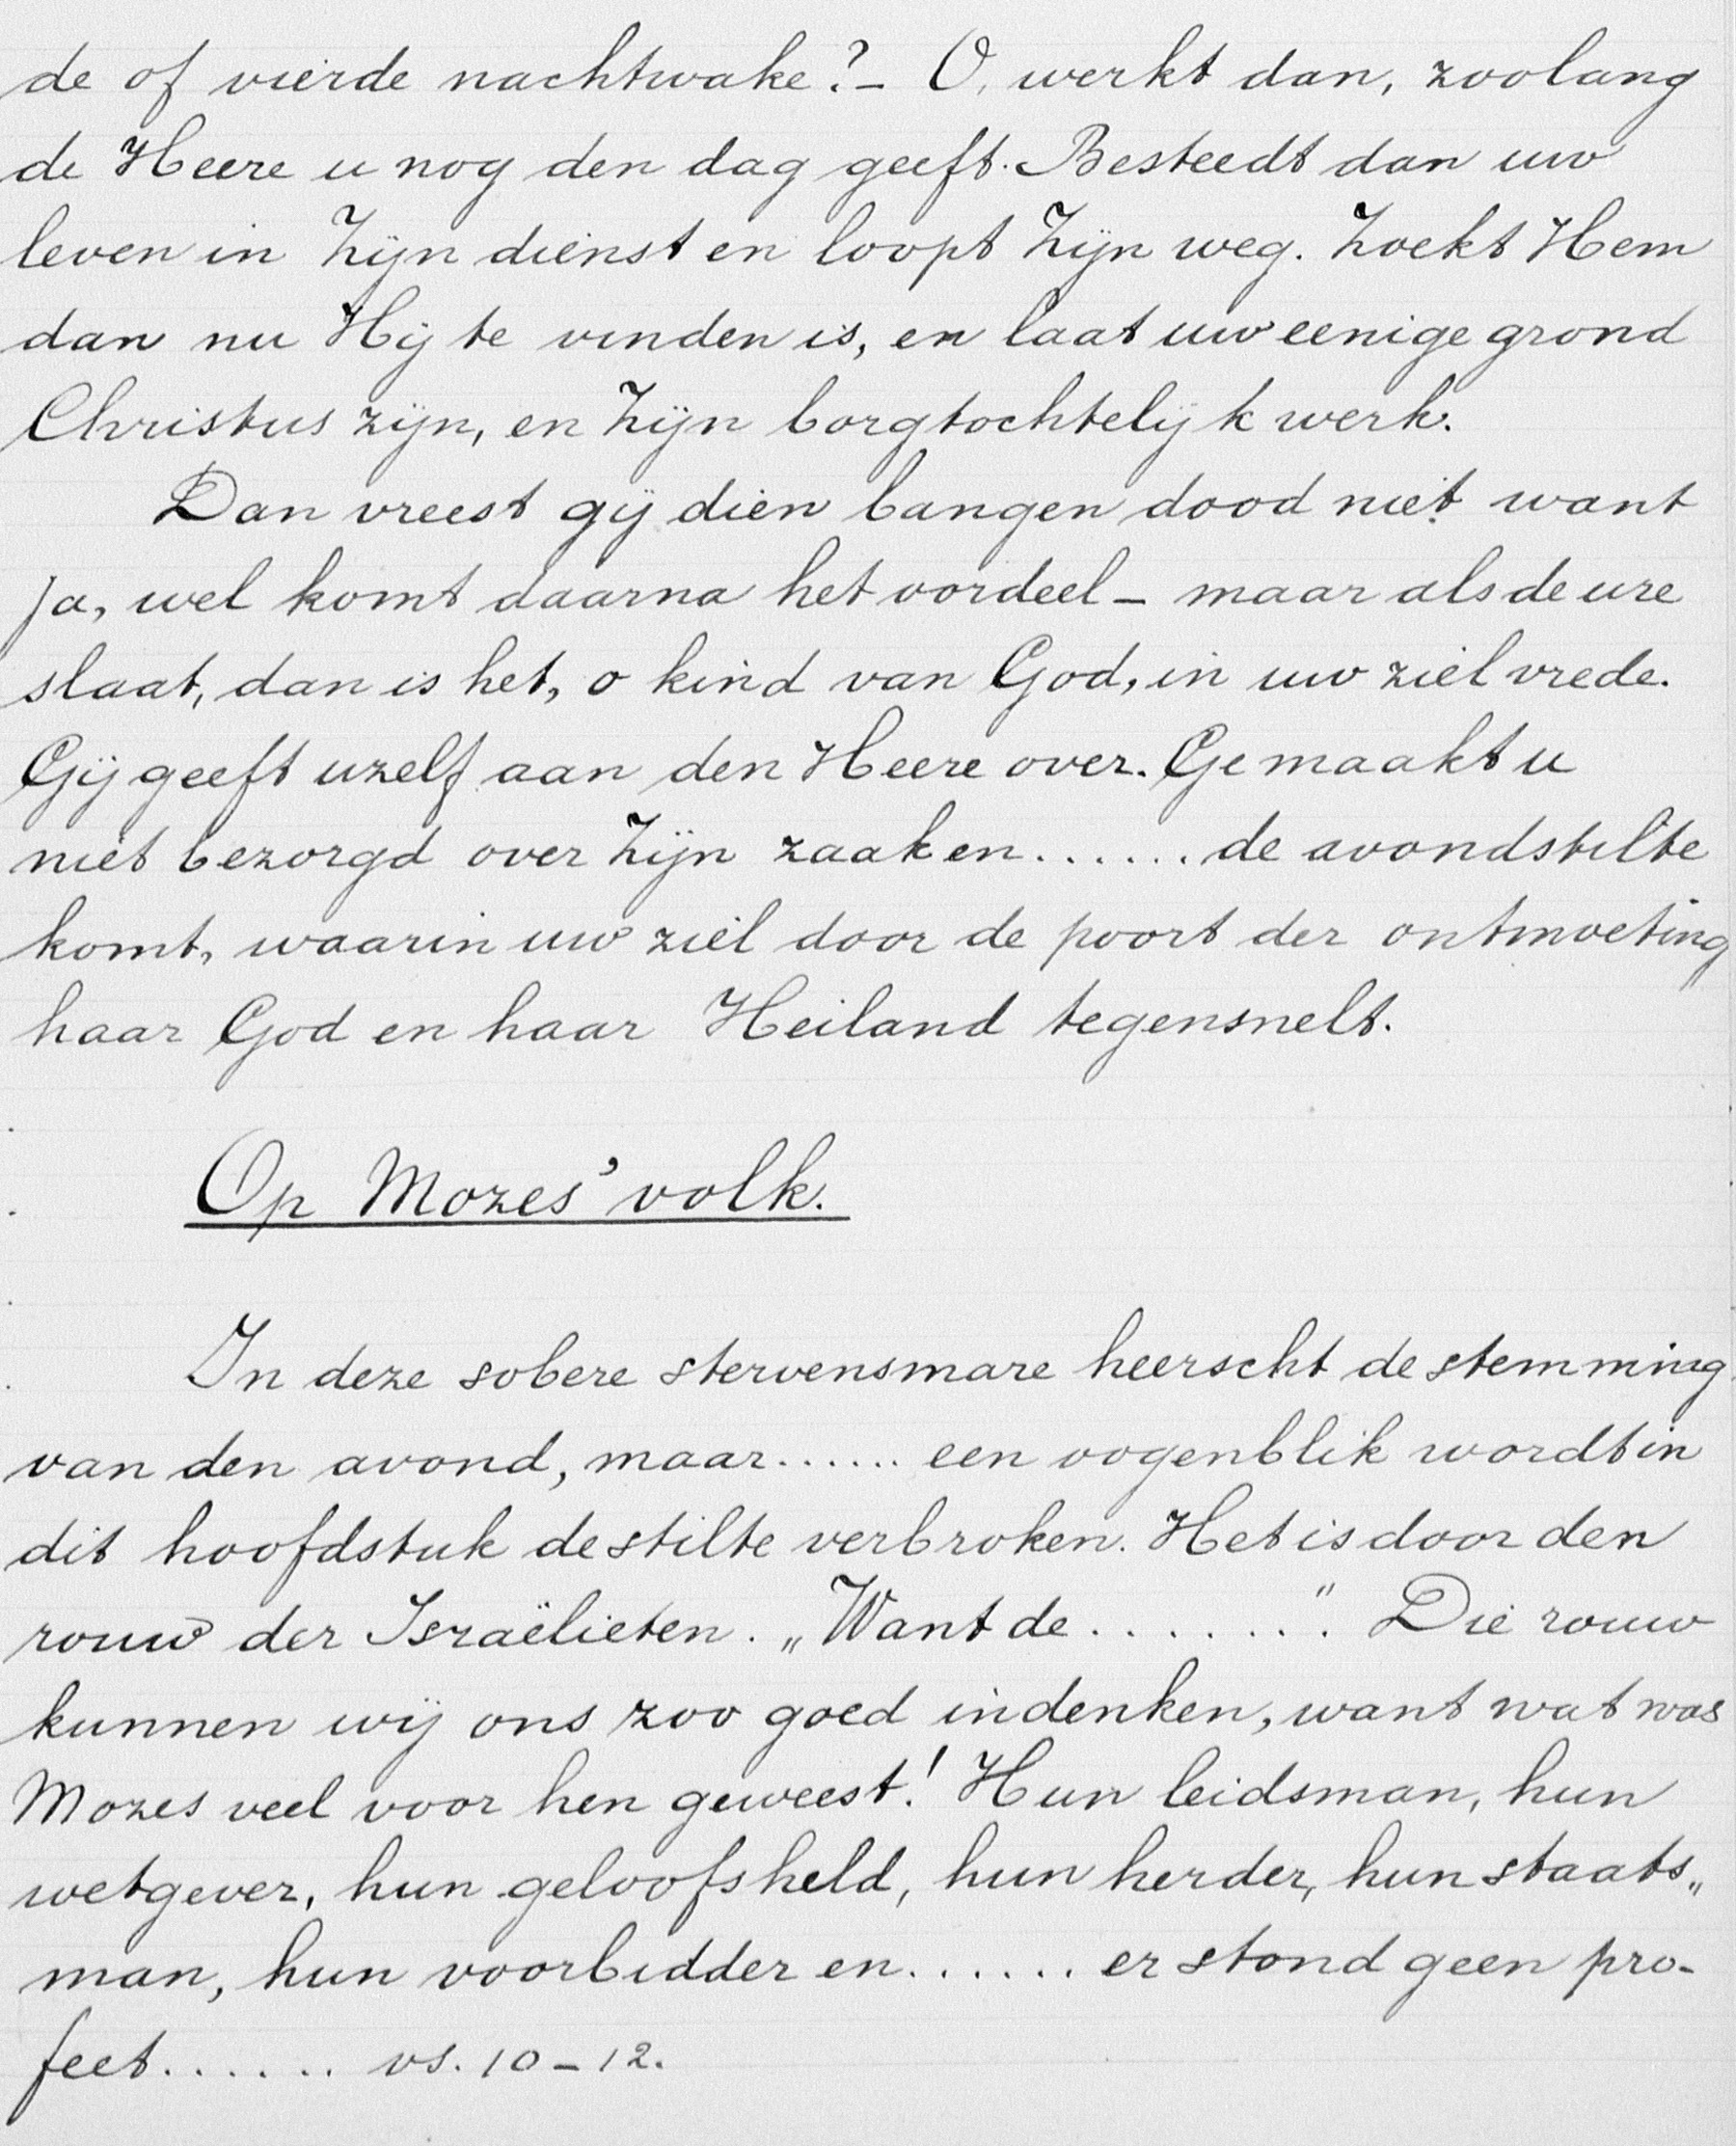 de of vierde nachtwake?- O, werkt dan, zoolang
de Heere u nog den dag geeft. Besteedt dan uw
leven in Zijn dienst en loopt Zijn weg. Zoekt Hem
dan nu Hij te vinden is, en laat uw eenige grond
Christus zijn, en Zijn borgtochtelijk werk.
Dan vreest gij dien bangen dood niet want
ja, wel komt daarna het oordeel - maar als de ure
slaat, dan is het, o kind van God, in uw ziel vrede.
Gij geeft uzelf aan den Heere over. Ge maakt u
niet bezorgd over Zijn zaaken...... de avondstilte
komt, waarin uw ziel door de poort der ontmoeting
haar God en haar Heiland tegensnelt.
Op Mozes' volk.
In deze sobere stervensmare heerscht de stemming
van den avond, maar...... een oogenblik wordt in
dit hoofdstuk de stilte verbroken. Het is door den
rouw der Israëlieten. „Want de ........" Die rouw
kunnen wij ons zoo goed indenken, want wat was
Mozes veel voor hen geweest! Hun leidsman, hun
wetgever, hun geloofsheld, hun herder, hun staats„
man, hun voorbidder en...... er stond geen pro-
feet...... vs. 10-12.